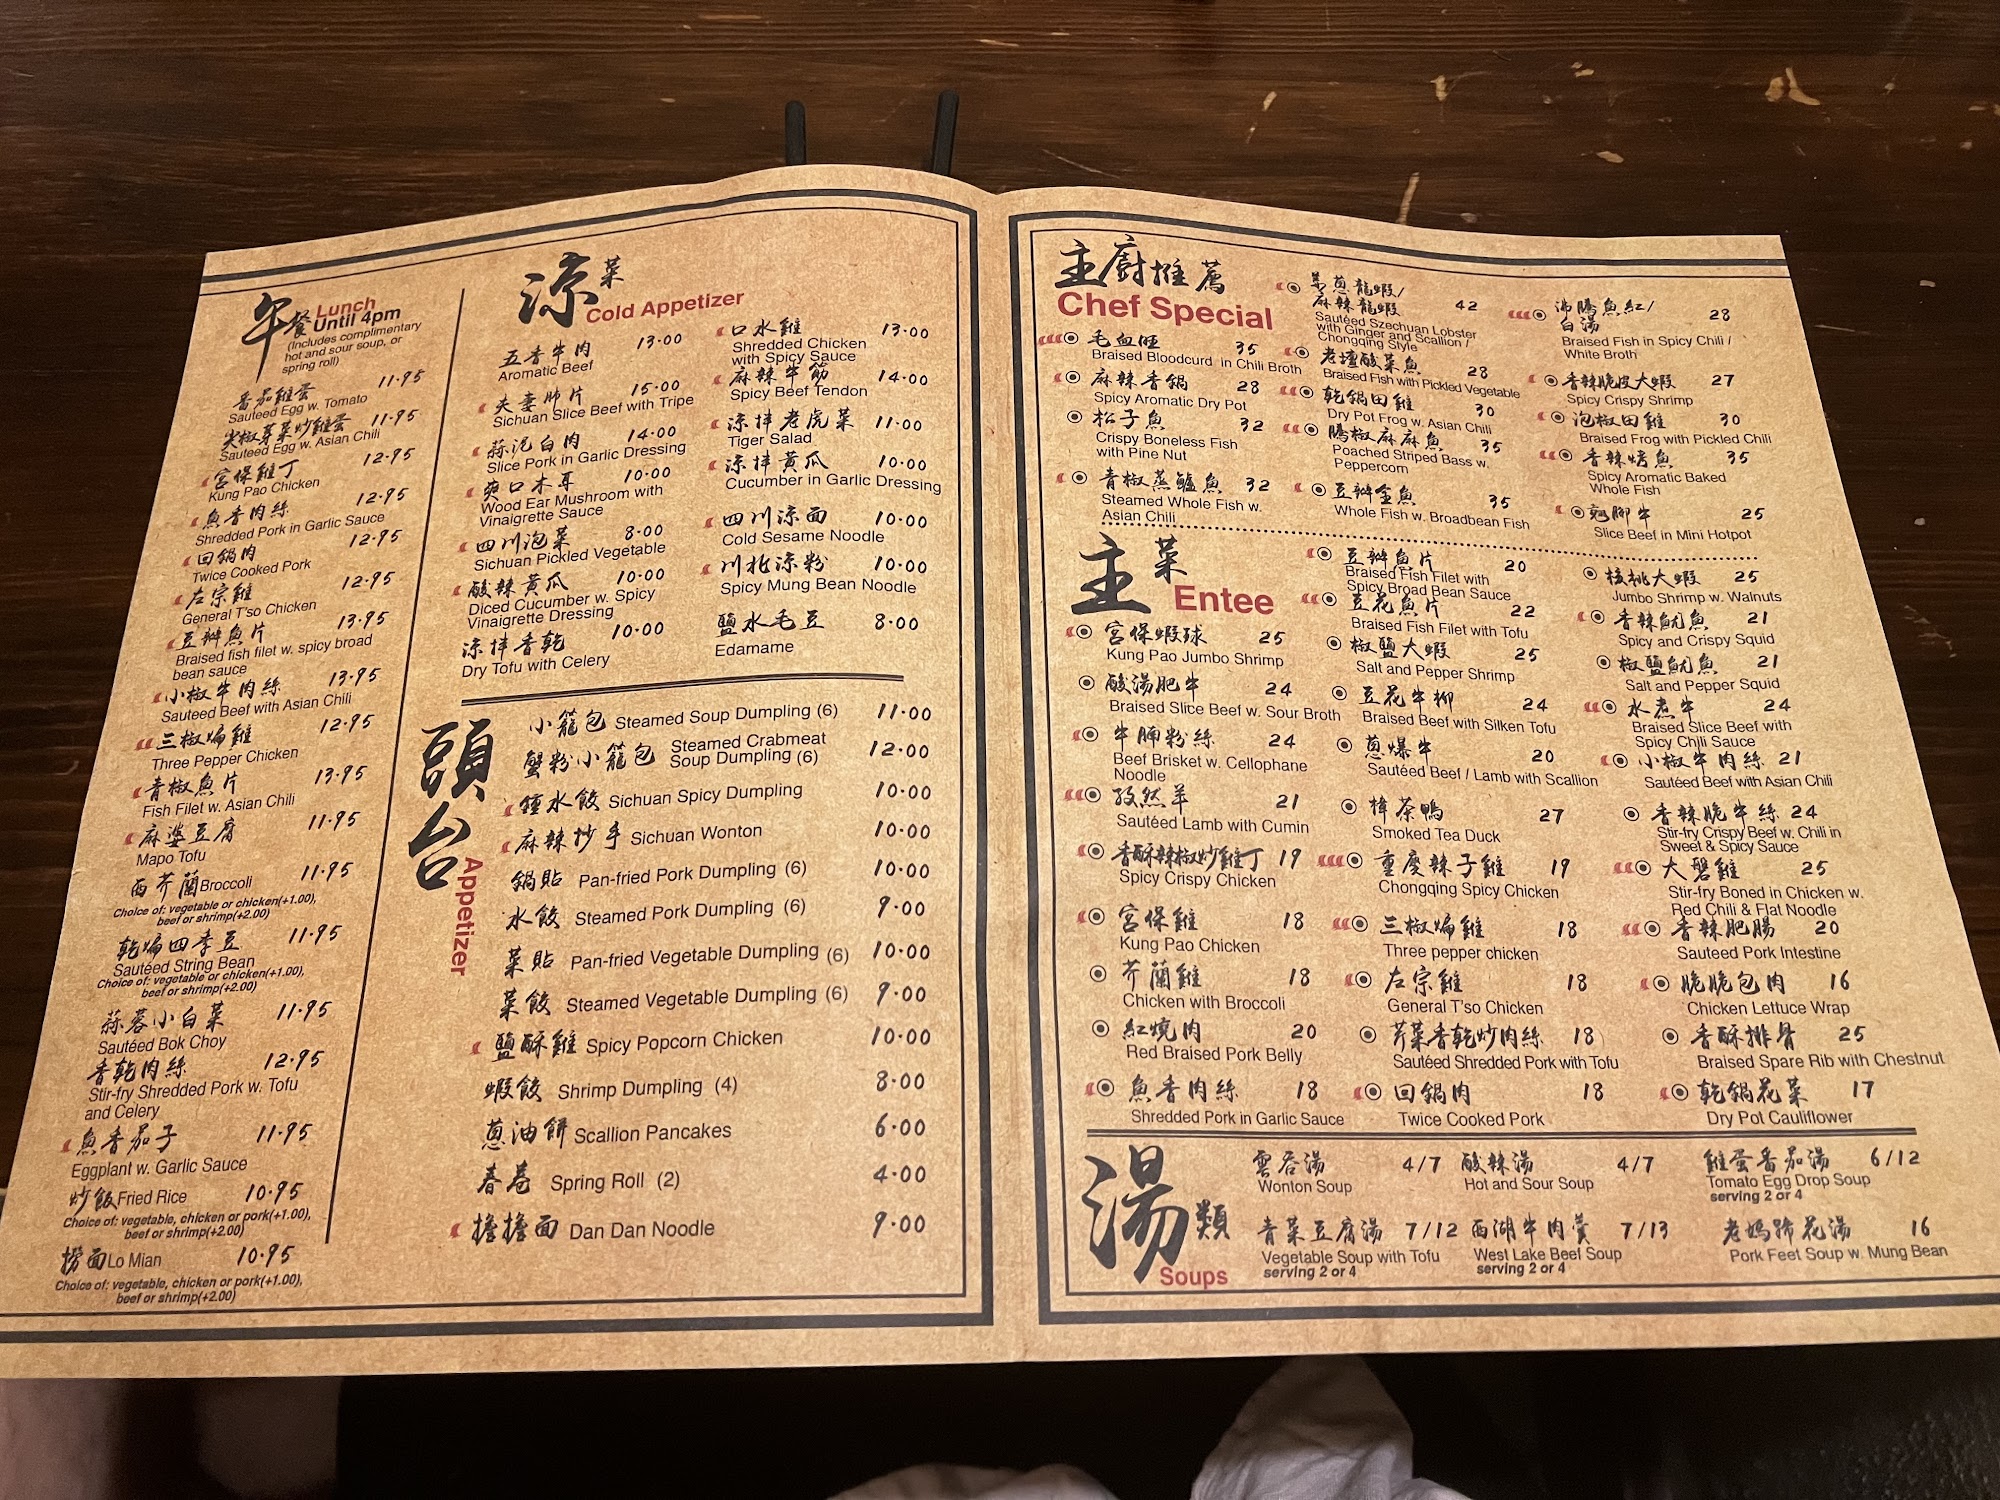 午餐 Lunch
Until 4pm
(Includes complimentary
hot and sour soup, or
spring roll)
番茄雞蛋 11.95
Sauteed Egg w. Tomato
尖椒芽菜炒雞蛋 11.95
Sauteed Egg w. Asian Chili
宮保雞丁 12.95
Kung Pao Chicken
魚香肉絲 12.95
Shredded Pork in Garlic Sauce
回鍋肉 12.95
Twice Cooked Pork
左宗雞 12.95
General T'so Chicken
豆瓣魚片 13.95
Braised fish filet w. spicy broad
bean sauce
小椒牛肉絲 13.95
Sauteed Beef with Asian Chili
三椒煸雞 12.95
Three Pepper Chicken
青椒魚片 13.95
Fish Filet w. Asian Chili
麻婆豆腐 11.95
Mapo Tofu
西芥蘭 Broccoli 11.95
Choice of: vegetable or chicken(+1.00),
beef or shrimp(+2.00)
乾煸四季豆 11.95
Sautéed String Bean
Choice of: vegetable or chicken(+1.00),
beef or shrimp(+2.00)
蒜蓉小白菜 11.95
Sautéed Bok Choy
香乾肉絲 12.95
Stir-fry Shredded Pork w. Tofu
and Celery
魚香茄子 11.95
Eggplant w. Garlic Sauce
炒飯 Fried Rice 10.95
Choice of: vegetable, chicken or pork(+1.00),
beef or shrimp(+2.00)
撈面 Lo Mian 10.95
Choice of: vegetable, chicken or pork(+1.00),
beef or shrimp(+2.00)
涼菜
Cold Appetizer
五香牛肉 13.00
Aromatic Beef
夫妻肺片 15.00
Sichuan Slice Beef with Tripe
蒜泥白肉 14.00
Slice Pork in Garlic Dressing
爽口木耳 10.00
Wood Ear Mushroom with
Vinaigrette Sauce
四川泡菜 8.00
Sichuan Pickled Vegetable
酸辣黃瓜 10.00
Diced Cucumber w. Spicy
Vinaigrette Dressing
涼拌香乾 10.00
Dry Tofu with Celery
口水雞 13.00
Shredded Chicken
with Spicy Sauce
麻辣牛筋 14.00
Spicy Beef Tendon
涼拌老虎菜 11.00
Tiger Salad
涼拌黃瓜 10.00
Cucumber in Garlic Dressing
四川涼面 10.00
Cold Sesame Noodle
川北涼粉 10.00
Spicy Mung Bean Noodle
鹽水毛豆 8.00
Edamame
頭台
Appetizer
小籠包 Steamed Soup Dumpling (6) 11.00
蟹粉小籠包 Steamed Crabmeat
Soup Dumpling (6) 12.00
鍾水餃 Sichuan Spicy Dumpling 10.00
麻辣抄手 Sichuan Wonton 10.00
鍋貼 Pan-fried Pork Dumpling (6) 10.00
水餃 Steamed Pork Dumpling (6) 9.00
菜貼 Pan-fried Vegetable Dumpling (6) 10.00
菜餃 Steamed Vegetable Dumpling (6) 9.00
鹽酥雞 Spicy Popcorn Chicken 10.00
蝦餃 Shrimp Dumpling (4) 8.00
蔥油餅 Scallion Pancakes 6.00
春卷 Spring Roll (2) 4.00
擔擔面 Dan Dan Noodle 9.00
主廚推薦
Chef Special
毛血旺 35
Braised Bloodcurd in Chili Broth
麻辣香鍋 28
Spicy Aromatic Dry Pot
松子魚 32
Crispy Boneless Fish
with Pine Nut
青椒蒸鱸魚 32
Steamed Whole Fish w.
Asian Chili
姜蔥龍蝦/
麻辣龍蝦 42
Sautéed Szechuan Lobster
with Ginger and Scallion /
Chongqing Style
老壇酸菜魚 28
Braised Fish with Pickled Vegetable
乾鍋田雞 30
Dry Pot Frog w. Asian Chili
騰椒麻麻魚 35
Poached Striped Bass w.
Peppercorn
豆瓣全魚 35
Whole Fish w. Broadbean Fish
沸騰魚紅/
白湯 28
Braised Fish in Spicy Chili /
White Broth
香辣脆皮大蝦 27
Spicy Crispy Shrimp
泡椒田雞 30
Braised Frog with Pickled Chili
香辣烤魚 35
Spicy Aromatic Baked
Whole Fish
翹腳牛 25
Slice Beef in Mini Hotpot
主菜
Entee
宮保蝦球 25
Kung Pao Jumbo Shrimp
酸湯肥牛 24
Braised Slice Beef w. Sour Broth
牛腩粉絲 24
Beef Brisket w. Cellophane
Noodle
孜然羊 21
Sautéed Lamb with Cumin
香酥辣椒炒雞丁 19
Spicy Crispy Chicken
宮保雞 18
Kung Pao Chicken
芥蘭雞 18
Chicken with Broccoli
紅燒肉 20
Red Braised Pork Belly
魚香肉絲 18
Shredded Pork in Garlic Sauce
豆瓣魚片 20
Braised Fish Filet with
Spicy Broad Bean Sauce
豆花魚片 22
Braised Fish Filet with Tofu
椒鹽大蝦 25
Salt and Pepper Shrimp
豆花牛柳 24
Braised Beef with Silken Tofu
蔥爆牛 20
Sautéed Beef / Lamb with Scallion
樟茶鴨 27
Smoked Tea Duck
重慶辣子雞 19
Chongqing Spicy Chicken
三椒煸雞 18
Three pepper chicken
左宗雞 18
General T'so Chicken
芹菜香乾炒肉絲 18
Sautéed Shredded Pork with Tofu
回鍋肉 18
Twice Cooked Pork
核桃大蝦 25
Jumbo Shrimp w. Walnuts
香辣魷魚 21
Spicy and Crispy Squid
椒鹽魷魚 21
Salt and Pepper Squid
水煮牛 24
Braised Slice Beef with
Spicy Chili Sauce
小椒牛肉絲 21
Sautéed Beef with Asian Chili
香辣脆牛絲 24
Stir-fry Crispy Beef w. Chili in
Sweet & Spicy Sauce
大盤雞 25
Stir-fry Boned in Chicken w.
Red Chili & Flat Noodle
香辣肥腸 20
Sauteed Pork Intestine
脆脆包肉 16
Chicken Lettuce Wrap
香酥排骨 25
Braised Spare Rib with Chestnut
乾鍋花菜 17
Dry Pot Cauliflower
湯類
Soups
雲吞湯 4/7
Wonton Soup
酸辣湯 4/7
Hot and Sour Soup
雞蛋番茄湯 6/12
Tomato Egg Drop Soup
serving 2 or 4
青菜豆腐湯 7/12
Vegetable Soup with Tofu
serving 2 or 4
西湖牛肉羹 7/13
West Lake Beef Soup
serving 2 or 4
老媽蹄花湯 16
Pork Feet Soup w. Mung Bean